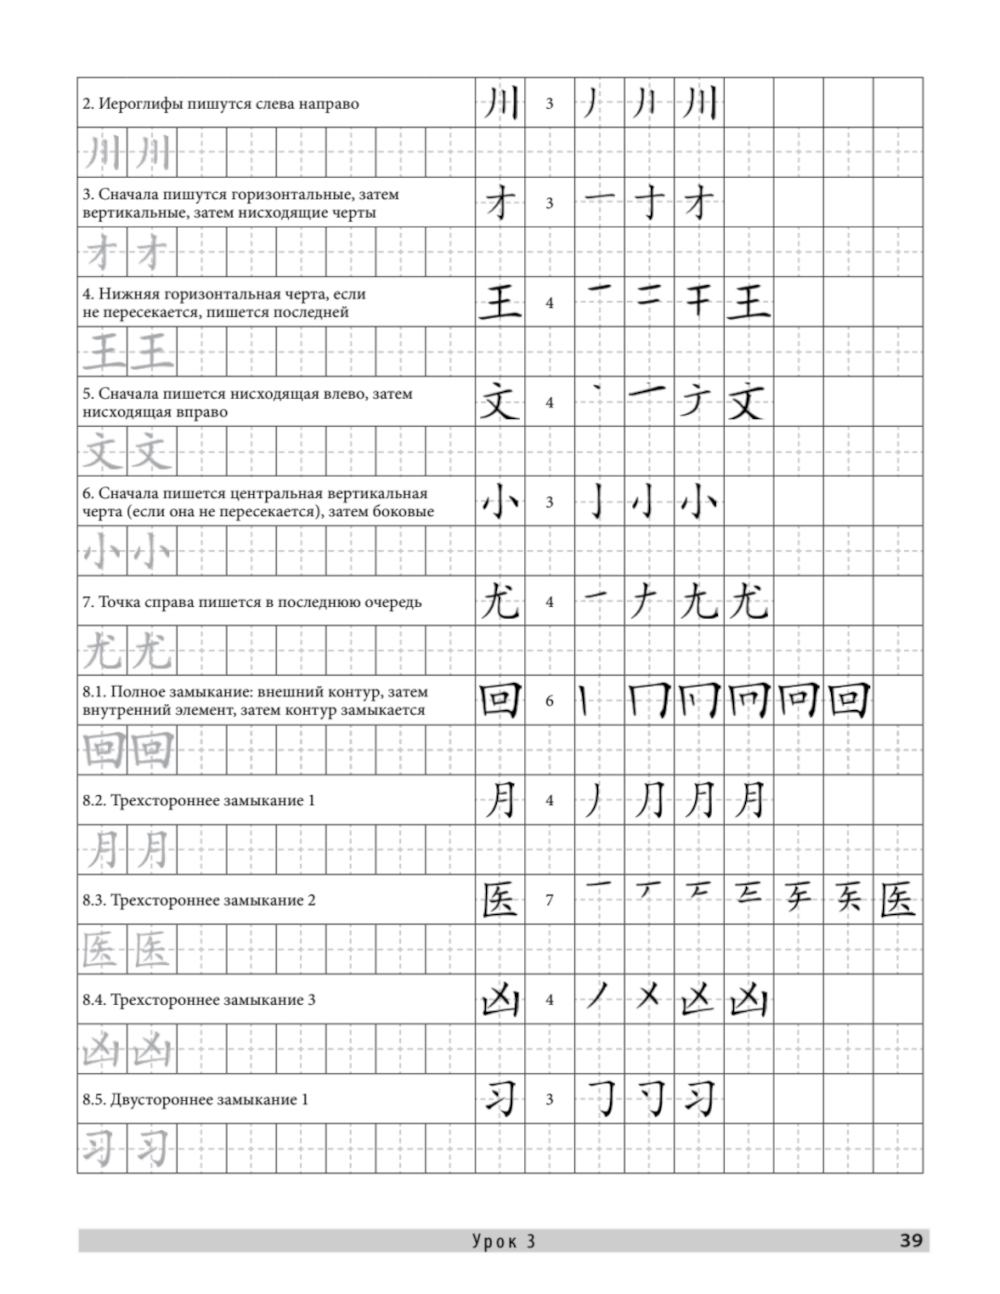 2. Иероглифы пишутся слева направо 川 3 丿 川
川 川
3. Сначала пишутся горизонтальные, затем
вертикальные, затем нисходящие черты 才 3 一 十 才
才 才
4. Нижняя горизонтальная черта, если
не пересекается, пишется последней 王 4 一 二 干 王
王 王
5. Сначала пишется нисходящая влево, затем
нисходящая вправо 文 4 丶 一 文
文 文
6. Сначала пишется центральная вертикальная
черта (если она не пересекается), затем боковые 小 3 亅 小
小 小
7. Точка справа пишется в последнюю очередь 尤 4 一 𠂇 尢 尤
尤 尤
8.1. Полное замыкание: внешний контур, затем
внутренний элемент, затем контур замыкается 回 6 丨 冂 回
回 回
8.2. Трехстороннее замыкание 1 月 4 丿 ⺆ 月 月
月 月
8.3. Трехстороннее замыкание 2 医 7 一 医
医 医
8.4. Трехстороннее замыкание 3 凶 4 丿 㐅 凶
凶 凶
8.5. Двустороннее замыкание 1 习 3 𠃌 习
习 习
Урок 3 39